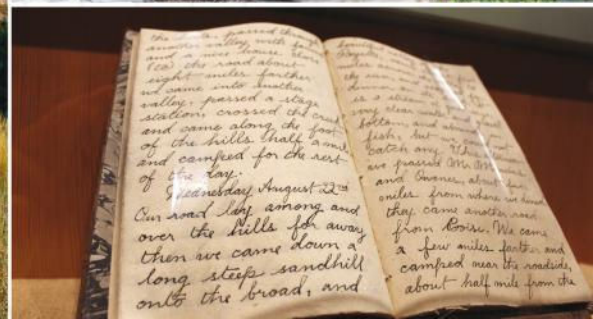 the hills, passed through
another valley with farm
and a nice house there
the road about
eight miles farther
we came into another
valley, passed a stage
station, crossed the creek
and came along the foot
of the hills half a mile
and camped for the rest
of the day.
Wednesday August 22nd
Our road lay among and
over the hills for away
then we came down a
long steep sandhill
onto the broad, and
beautiful
miles across
the
is a stream of
very clear water and
bottom, and
fish, but
catch any
we passed Mr.
and Owens, about
miles from where we
they came another road
from Boise. We came
a few miles farther and
camped near the roadside,
about half mile from the